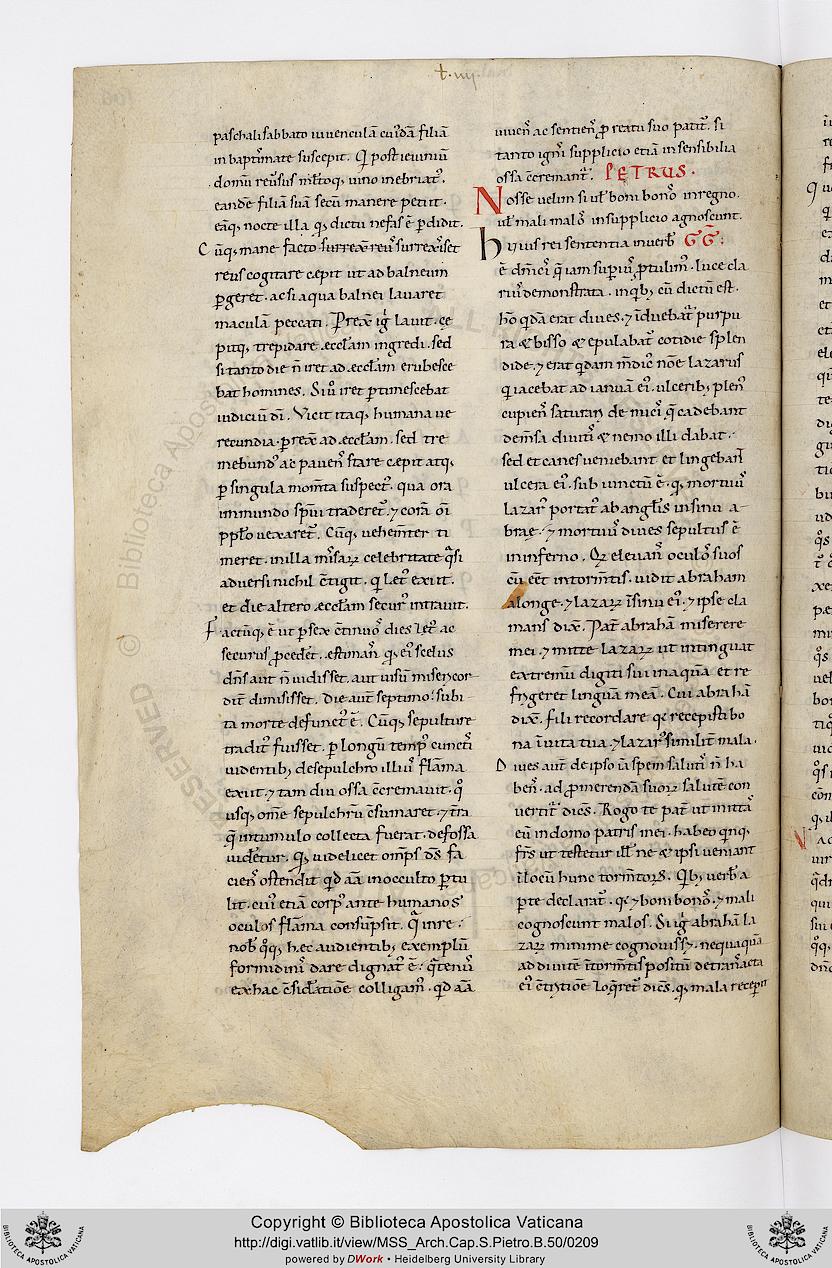 t·iiii·
paschali sabbato iuvenculā cuiꝰdā filiā
in baptismate suscepit. Q̇ post ieiuniū
domū reversus m̄ltoq; vino inebriatꝰ.
eandē filiā suā secū manere petiit.
eāq; nocte illa qͣ; dictu nefas ē ꝑdidit.
Cūq; mane facto surrexisset
reus cogitare cepit ut ad balneum
ꝑgeret. ac si aqua balnei lavaret
maculā peccati. Prexͭ igͥ lavit. ce
pitq; trepidare ecclam ingredi. sed
si tanto die n̄ iret ad ecclam erubesce
bat homines. Si ů iret ꝑtimescebat
iudiciū dī. Vicit itaq; humana ve
recundia. ꝑrexͭ ad ecclam. sed tre
mebundꝰ ac pavenſ stare cepit atq;
ꝑ singula momta suspectꝰ. qua ora
immundo spui traderetꝰ ⁊ corā oī
pplo vexaretꝰ. Cūq; vehemter ti
meret. in illa misarꝝ celebritate qͣsi
adversi nichil ctigit. q letꝰ exiit.
et die altero ecclam securꝰ intravit.
Factūq; ē ut ꝑ sex ctinuoſ dies letꝰ ac
securus ꝓcederet. estimanſ q eiꝰ scelus
dn̄s aut n̄ vidisset. aut visū misericor
dit dimisisset. Die aut septimo subi
ta morte defunctꝰ ē. Cūq; sepulture
traditꝰ fuisset. ꝑ longū tempꝰ cunctiſ
videntibꝫ de sepulchro illiuſ flāma
exiit. ⁊ tam diu ossa ccremavit. qͦ
usq; ome sepulchrū csumaret. ⁊ tra
q̄ in tumulo collecta fuerat. defossa
videretur. Qͩ; videlicet omps ds fa
cienſ ostendit qd aīa in occulto ꝑtu
lit. cuiꝰ etiā corpꝰ ante humanos
oculos flāma consūpsit. Qͣ in re
nob qͦq; hec audientibꝫ exemplū
formidiniſ dare dignatꝰ ē. qtenuſ
ex hac csideratioē colligamꝰ. qd aīa
vivenſ ac sentienſ ꝓ reatu suo patitꝰ. si
tanto igniſ supplicio etiā insensibilia
ossa ccremantꝰ. PETRUS.
Nosse velim si ul boni bonoſ in regno.
ul mali maloſ in supplicio agnoscunt.
huius rei sententia in verbiſ GḠ:
ē dnīciſ q iam supͥuſ ꝓtulimꝰ. luce cla
riuſ demonstrata. in qͥbꝫ cū dictū est.
ho qͥdā erat dives. ⁊ īduebatꝰ purpu
ra & bisso & epulabatꝰ cotidie splen
dide. ⁊ erat qͥdam mdicꝰ noīe lazarus
q iacebat ad ianuā eiꝰ. ulceribꝫ plenꝰ
cupienſ saturari de miciſ q cadebant
de mensa divitiſ & nemo illi dabat.
sed et canes veniebant et lingebant
ulcera eiꝰ. subiunctū ē. qͩ; mortuuſ
lazarꝰ portatꝰ ab anglis in sinū a
brae. ⁊ mortuuſ dives sepultus ē
in inferno. Qͥ elevanſ oculoſ suos
cū eēt in tormtis. vidit abraham
a longe. ⁊ lazarꝝ ī sinu eiꝰ. ⁊ ipse cla
mans dixͭ. Patͬ abrahā miserere
mei. ⁊ mitte lazarꝝ ut intinguat
extremū digiti sui in aquā et re
frigeret linguā meā. Cui abrahā
dixͭ. fili recordare qͩ recepisti bo
na ī vita tua. ⁊ lazarꝰ similit mala.
Dives aut de ipso iā spem salutiſ n̄ ha
benſ. ad ꝓmerendā suorꝝ salutē con
vertitꝰ dicēs. Rogo te patͬ ut mittaſ
eū in domo patris mei. habeo qnq;
frs ut testetur illiſ ne & ipsi veniant
ī locū hunc tormtorꝝ. Qͥbꝫ verbiſ a
perte declaratꝰ. qͩ ⁊ boni bonoſ ⁊ mali
cognoscunt malos. Si igͥ abrahā la
zarꝝ minime cognovisset. nequaquā
ad divitē ī tormtis positū de transacta
eiꝰ ctritione loqretꝰ dicēs. qͩ; mala receperit
Copyright © Biblioteca Apostolica Vaticana
http://digi.vatlib.it/view/MSS_Arch.Cap.S.Pietro.B.50/0209
powered by DWork • Heidelberg University Library